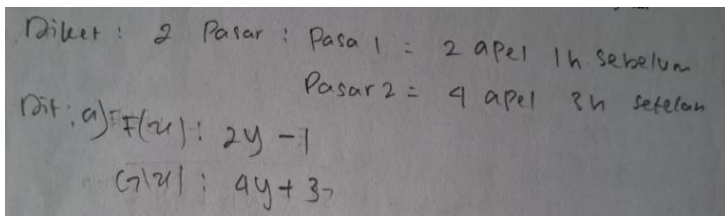 Diket : 2 Pasar : Pasa 1 = 2 apel 1h sebelum
Pasar 2 = 4 apel 3h setelah
Dit : a) F(x) : 2y - 1
G(x) : 4y + 3